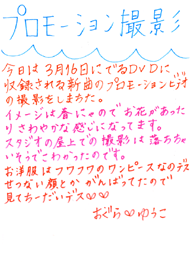 プロモーション撮影
今日は3月16日にでるDVDに
収録される新曲のプロモーションビデオ
の撮影をしまちた。
イメージは春にゃのでお花があった
りさわやかな感じになってます。
スタジオの屋上での撮影は落ちちゃ
いそうでこわかったのです。
お洋服はフワフワのワンピースなのデス
せつない顔とかがんばってたので
見てちょーだいデス♡♡
おぐら♡ゆうこ